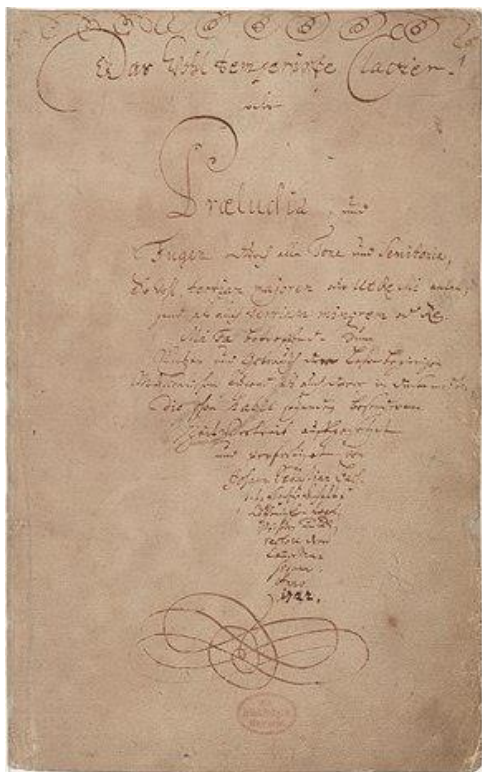 Das Wohltemperirte Clavier.
oder
Præludia, und
Fugen durch alle Tone und Semitonia,
So wohl tertiam majorem oder Ut Re Mi anlan-
gend, als auch tertiam minorem oder Re
Mi Fa betreffend. Zum
Nutzen und Gebrauch der Lehrbegierigen
Musicalischen Jugend, als auch derer in diesem stu-
dio schon habil seyenden besonderem
Zeitvertreib auffgesetzet
und verfertiget von
Johann Sebastian Bach.
p. t. Hochfürstlich
Anhalt-Cöthenischen Capel-
Meistern und Di-
rectore derer
Cammer
Musiquen.
Anno
1722.